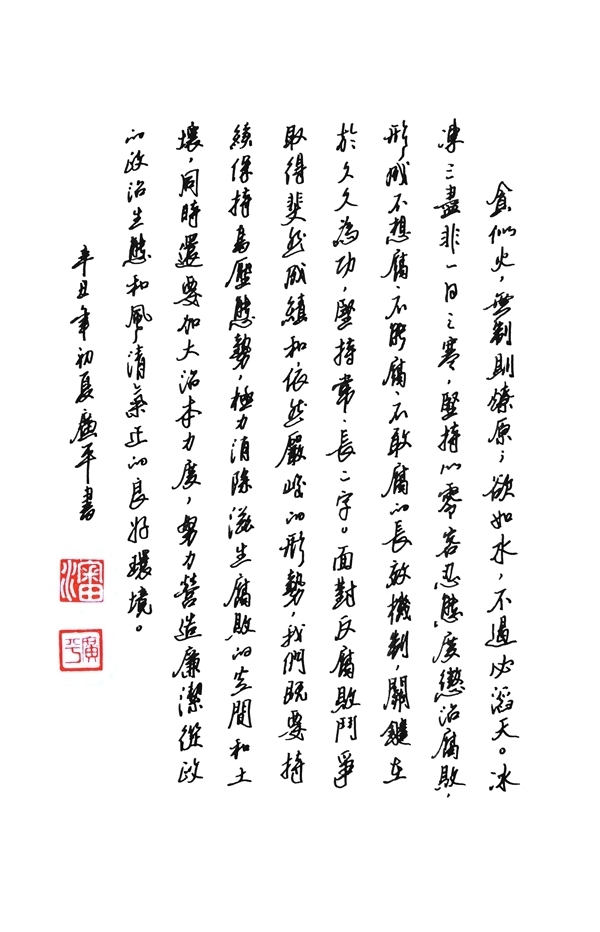 貪似火，無制則燎原；欲如水，不遏必滔天。冰
凍三盡非一日之寒，堅持以零容忍態度懲治腐敗，
形成不想腐、不能腐、不敢腐的長效機制，關鍵在
於久久為功，堅持常、長二字。面對反腐敗鬥爭
取得斐然成績和依然嚴峻的形勢，我們既要持
續保持高壓態勢，極力消除滋生腐敗的空間和土
壤，同時還要加大治本力度，努力營造廉潔從政
的政治生態和風清氣正的良好環境。
辛丑年初夏廣平書
潘
廣平